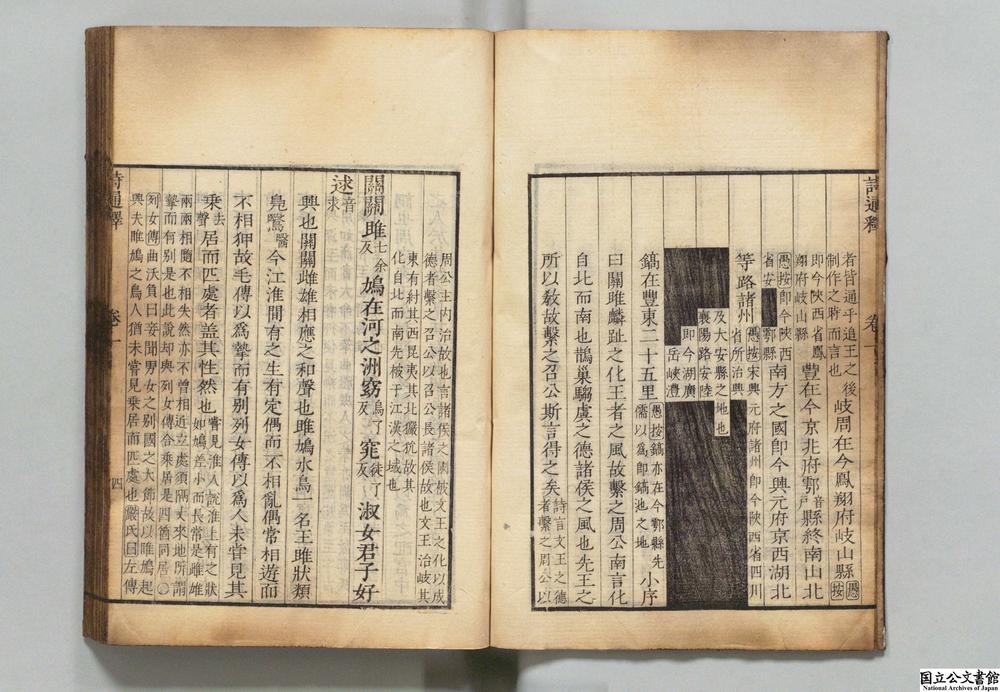 者皆通乎追王之後
制作之時而言也
岐周在今鳳翔府岐山縣
愚按
即今陝西省鳳
翔府岐山縣
豐在今京兆府鄠音縣終南山北
戶
愚按即今陝西
省安
鄠縣
南方之國即今興元府京西湖北
等路諸州
愚按宋興元府諸州即今陝西省四川
省所治興
及大安縣之地也
襄陽路安陸
即今湖廣
岳峽澧
鎬在豐東二十五里
愚按鎬亦在今鄠縣先
儒以為即鎬池之地
小序
曰關雎麟趾之化王者之風故繫之周公南言化
自北而南也鵲巢騶虞之德諸侯之風也先王之
所以敎故繫之召公斯言得之矣
詩言文王之德
者繫之周公以
詩通釋
卷一
周公主內治故也言諸侯之國被文王之化以成
德者繫之召公以召公長諸侯故也文王治岐其
東有紂其西昆夷其北玁狁故其
化自北而南先被于江漢之域也
關關雎七余反鳩在河之洲窈烏了反窕徒了反淑女君子好
逑音求
興也關關雌雄相應之和聲也雎鳩水鳥一名王雎狀類
鳧鷖醫今江淮間有之生有定偶而不相亂偶常相遊而
不相狎故毛傳以爲摯而有别列女傳以爲人未嘗見其
乘去聲居而匹處者蓋其性然也
嘗見淮人說淮上有之狀
如鳩差小而長常是雌雄
兩兩相隨不相失然亦不曾相近立處須隔丈來地所謂
摯而有别是也此說却與列女傳合乘居是四箇同居○
列女傳曲沃負曰妾聞男女之别國之大節故以雎鳩起
興夫雎鳩之鳥人猶未嘗見乘居而匹處也嚴氏曰左傳
詩通釋
卷一
四
国立公文書館
National Archives of Japan